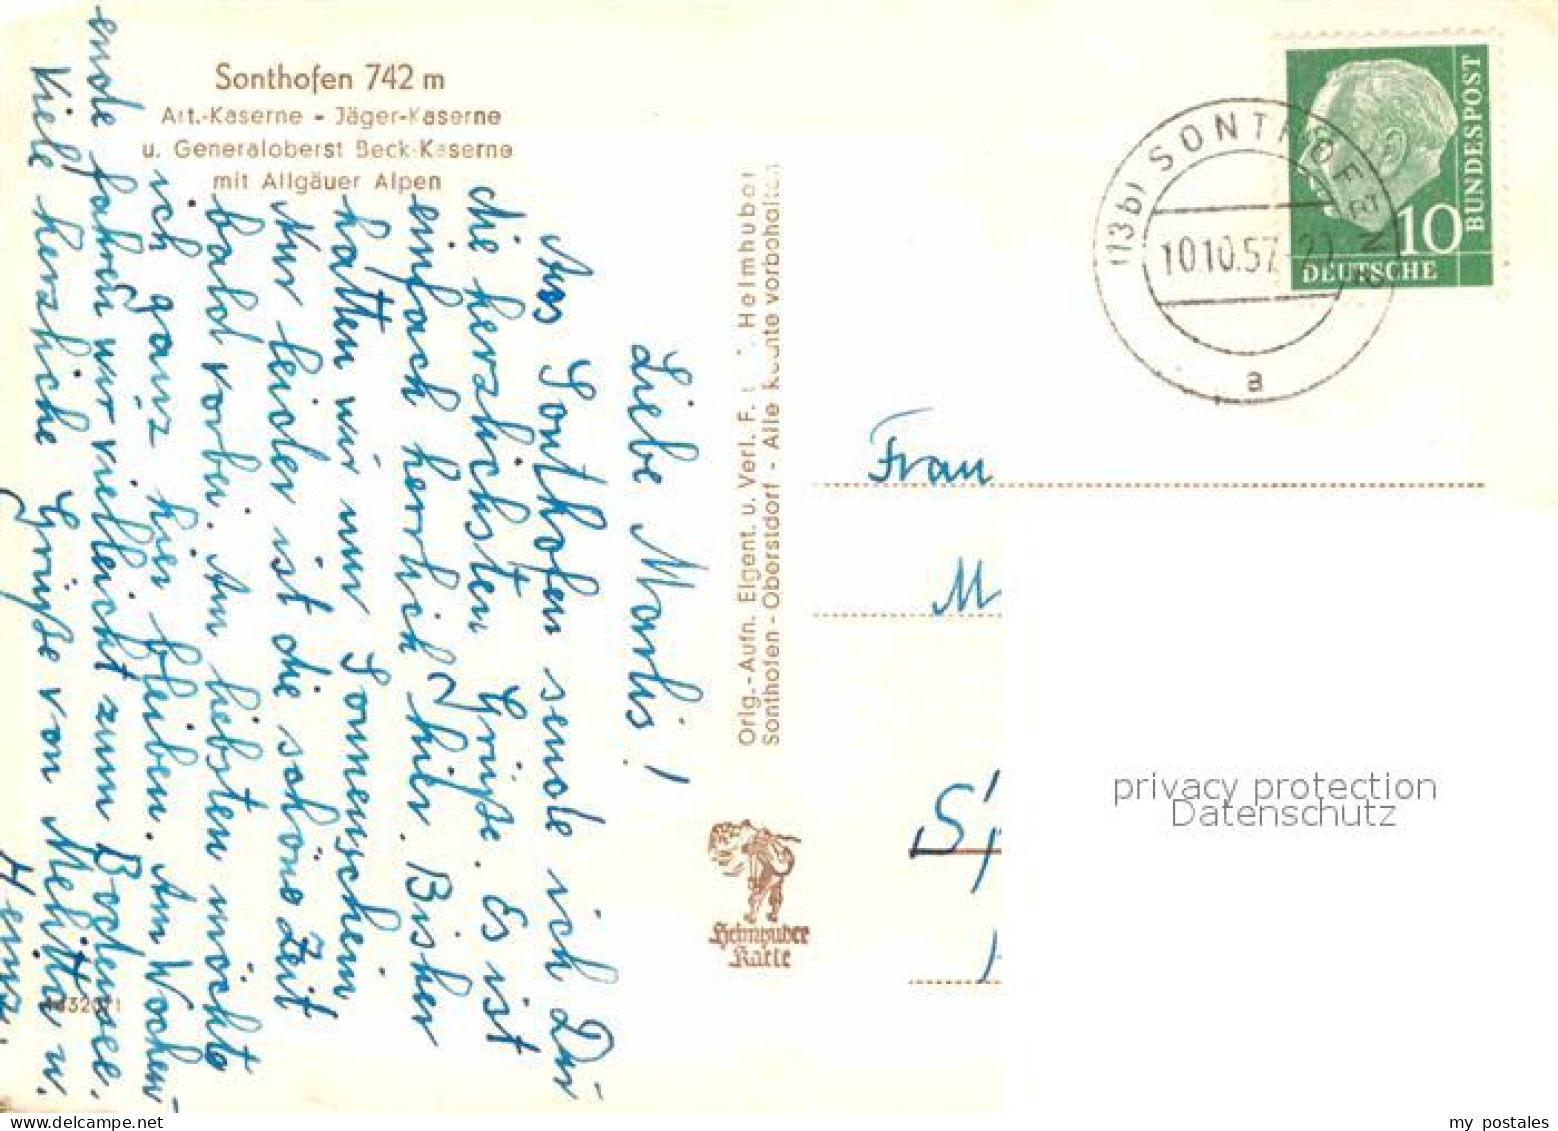 Sonthofen 742 m
Art.-Kaserne - Jäger-Kaserne
u. Generaloberst Beck-Kaserne
mit Allgäuer Alpen
Liebe Marlis!
Aus Sonthofen sende ich Dir
die herzlichsten Grüße. Es ist
einfach herrlich hier. Bisher
hatten wir nur Sonnenschein
Nur leider ist die schöne Zeit
bald vorbei. Am liebsten möchte
ich ganz hier bleiben. Am Wochen-
ende fahren wir vielleicht zum Bodensee.
Viele herzliche Grüße von Mehttn u.
Heinz.
Orig.-Aufn. Eigent. u. Verl. F. Heimhuber
Sonthofen - Oberstdorf - Alle Rechte vorbehalten
Heimhuber
Karte
(13b) SONTHOFEN
10.10.57-20
a
10
DEUTSCHE
BUNDESPOST
Frau
M
privacy protection
Datenschutz
my postales